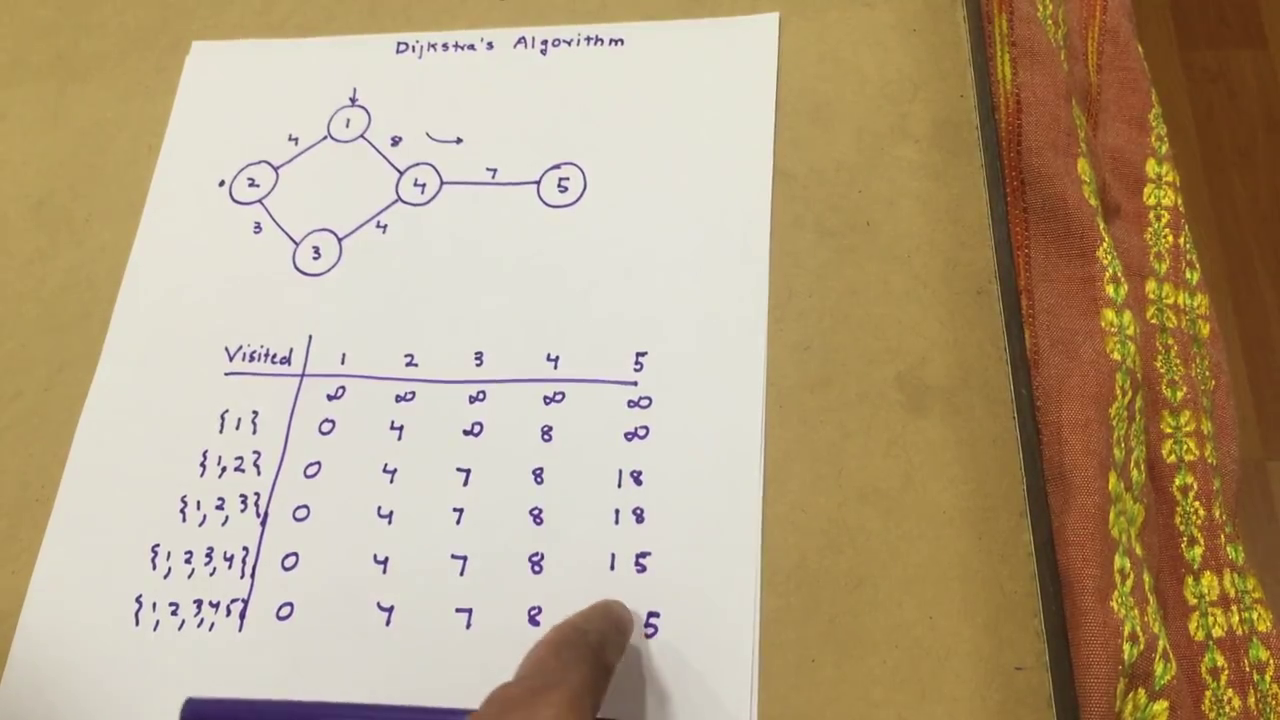 Dijkstra's Algorithm
1
4 8
2 4 7 5
3 4
3
Visited 1 2 3 4 5
∞ ∞ ∞ ∞ ∞
{1} 0 4 ∞ 8 ∞
{1,2} 0 4 7 8 18
{1,2,3} 0 4 7 8 18
{1,2,3,4} 0 4 7 8 15
{1,2,3,4,5} 0 4 7 8 5